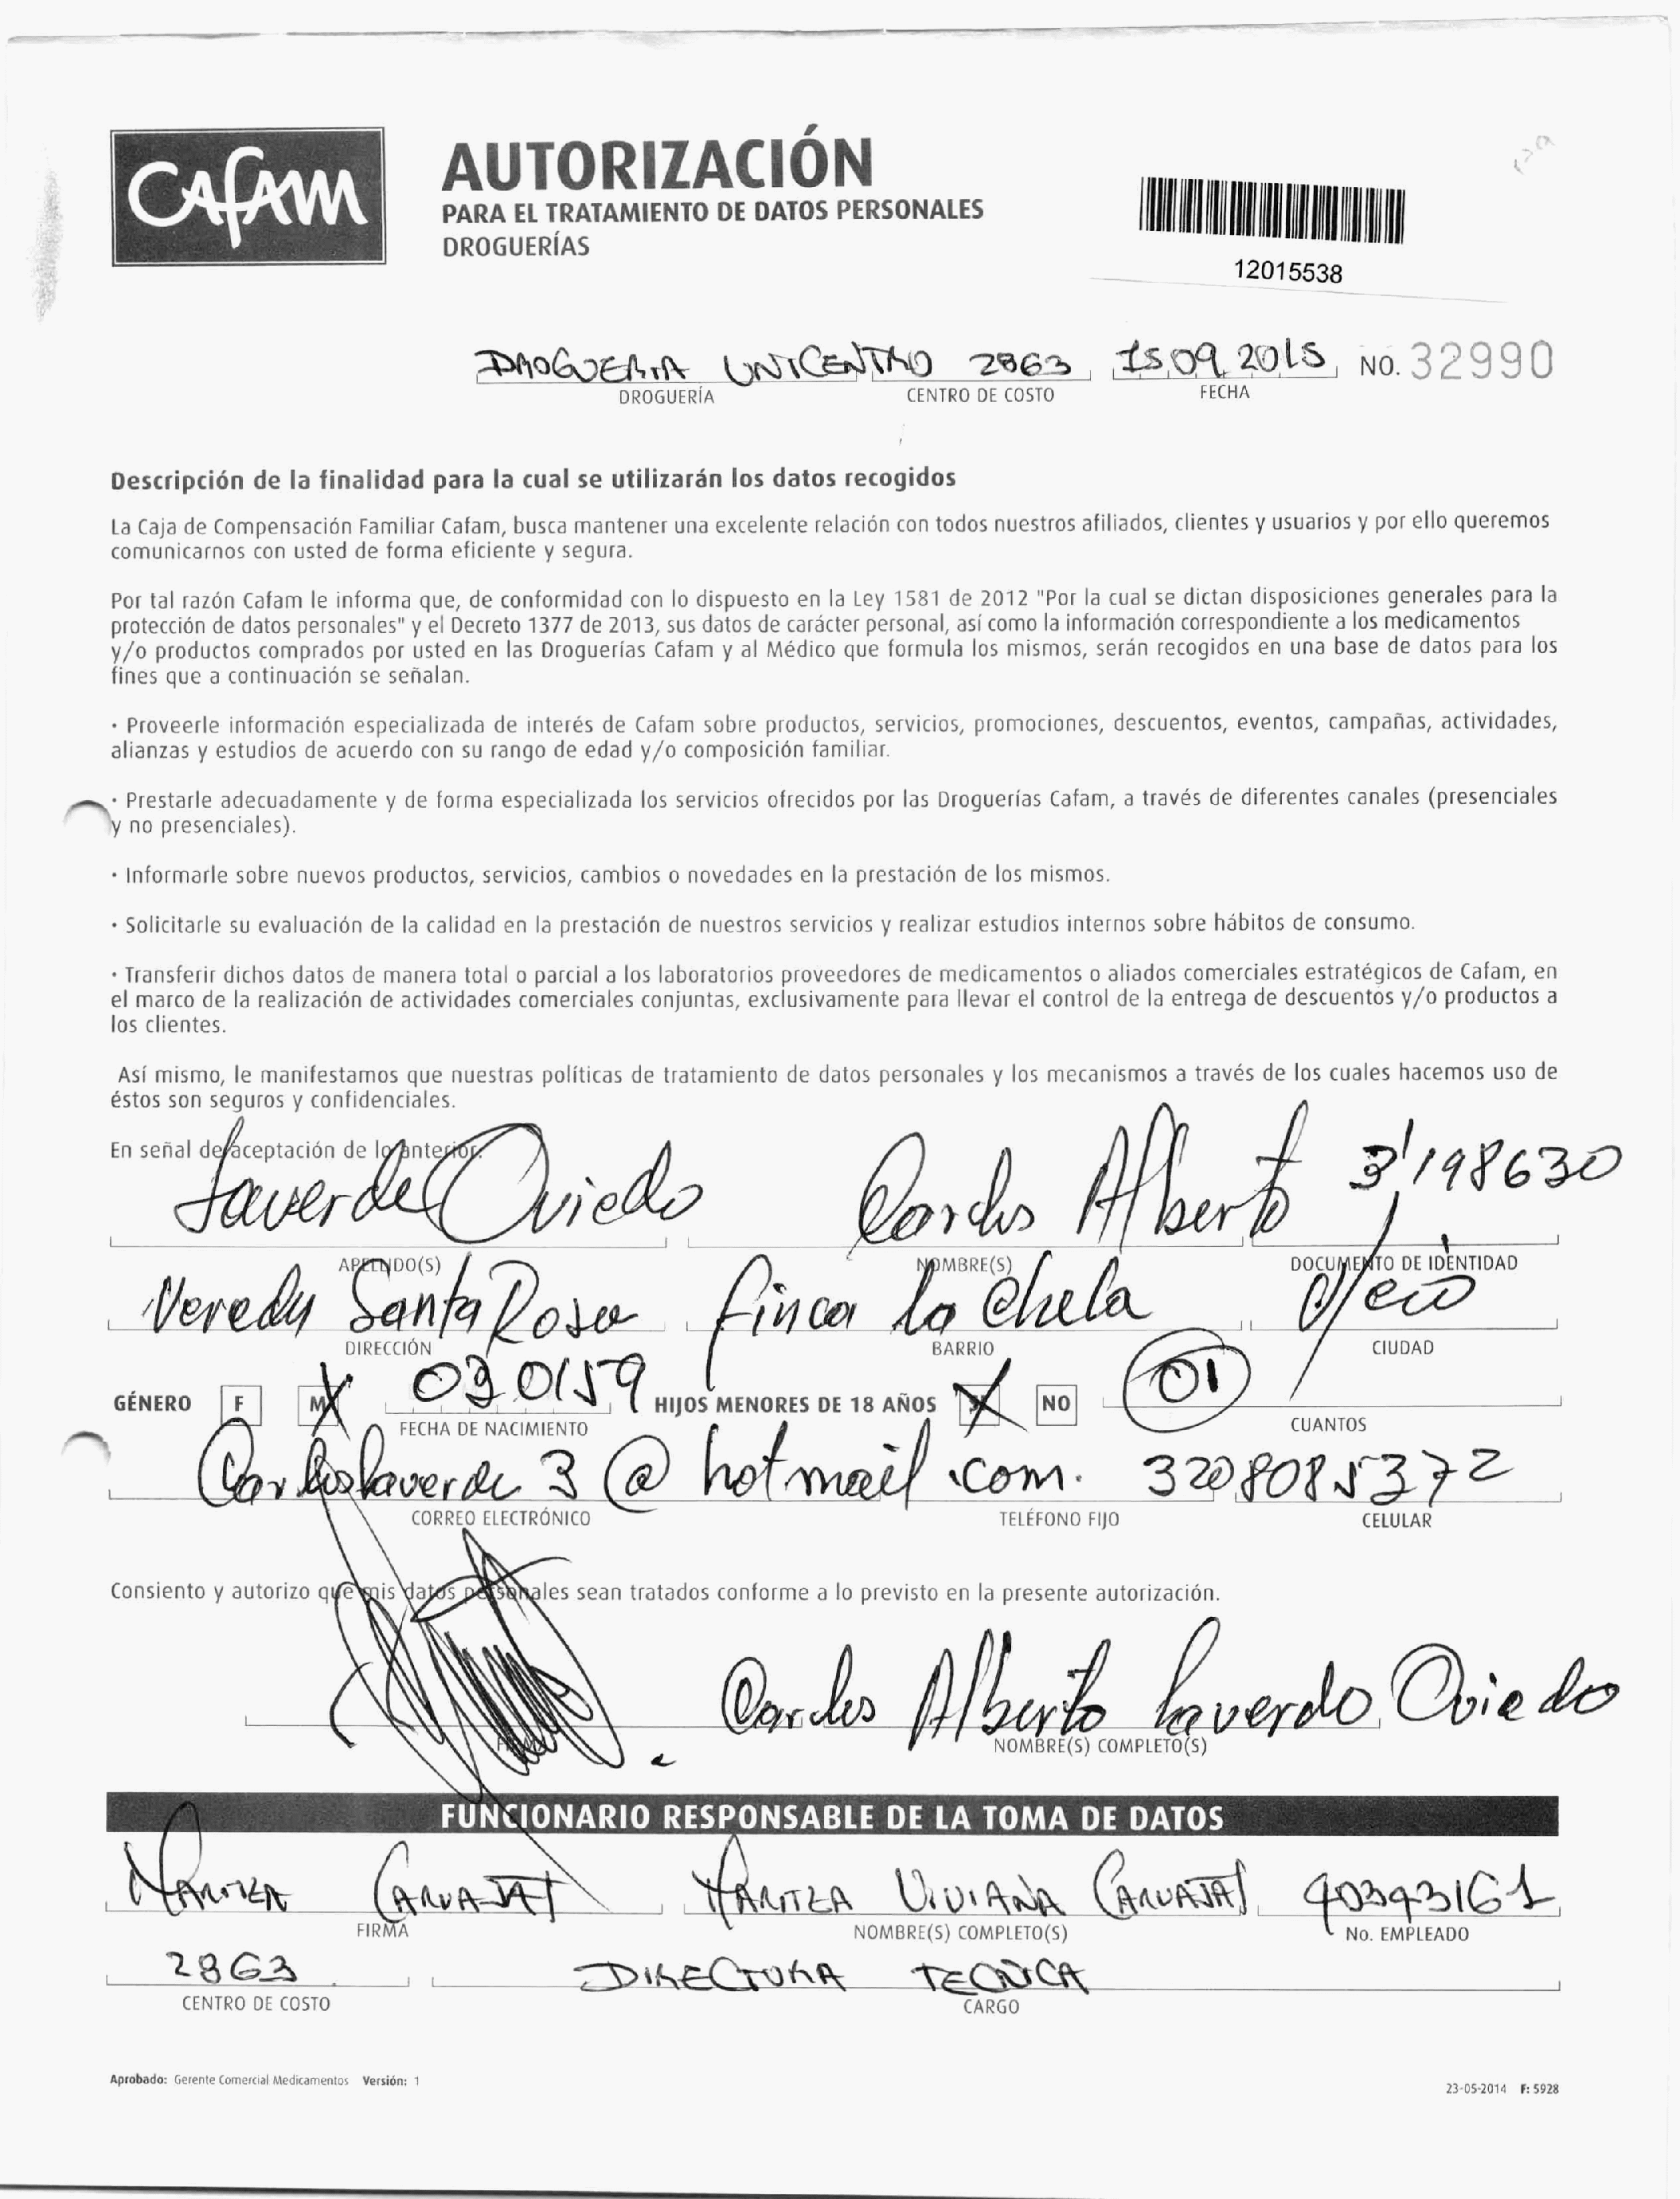 CAFAM
AUTORIZACIÓN
PARA EL TRATAMIENTO DE DATOS PERSONALES
DROGUERÍAS
12015538
DROGUERIA UNICENTRO 2863 15 09 2015 NO. 32990
DROGUERÍA CENTRO DE COSTO FECHA
Descripción de la finalidad para la cual se utilizarán los datos recogidos
La Caja de Compensación Familiar Cafam, busca mantener una excelente relación con todos nuestros afiliados, clientes y usuarios y por ello queremos
comunicarnos con usted de forma eficiente y segura.
Por tal razón Cafam le informa que, de conformidad con lo dispuesto en la Ley 1581 de 2012 "Por la cual se dictan disposiciones generales para la
protección de datos personales" y el Decreto 1377 de 2013, sus datos de carácter personal, así como la información correspondiente a los medicamentos
y/o productos comprados por usted en las Droguerías Cafam y al Médico que formula los mismos, serán recogidos en una base de datos para los
fines que a continuación se señalan.
· Proveerle información especializada de interés de Cafam sobre productos, servicios, promociones, descuentos, eventos, campañas, actividades,
alianzas y estudios de acuerdo con su rango de edad y/o composición familiar.
· Prestarle adecuadamente y de forma especializada los servicios ofrecidos por las Droguerías Cafam, a través de diferentes canales (presenciales
y no presenciales).
· Informarle sobre nuevos productos, servicios, cambios o novedades en la prestación de los mismos.
· Solicitarle su evaluación de la calidad en la prestación de nuestros servicios y realizar estudios internos sobre hábitos de consumo.
· Transferir dichos datos de manera total o parcial a los laboratorios proveedores de medicamentos o aliados comerciales estratégicos de Cafam, en
el marco de la realización de actividades comerciales conjuntas, exclusivamente para llevar el control de la entrega de descuentos y/o productos a
los clientes.
Así mismo, le manifestamos que nuestras políticas de tratamiento de datos personales y los mecanismos a través de los cuales hacemos uso de
éstos son seguros y confidenciales.
En señal de aceptación de lo anterior.
Laverde Oviedo Carlos Alberto 3'198630
APELLIDO(S) NOMBRE(S) DOCUMENTO DE IDENTIDAD
Vereda Santa Rosa finca la Chela
DIRECCIÓN BARRIO CIUDAD
GÉNERO F M 030159 HIJOS MENORES DE 18 AÑOS NO 01
FECHA DE NACIMIENTO CUANTOS
Carloslaverde3@hotmail.com. 3208085372
CORREO ELECTRÓNICO TELÉFONO FIJO CELULAR
Consiento y autorizo que mis datos personales sean tratados conforme a lo previsto en la presente autorización.
Carlos Alberto Laverde Oviedo
FIRMA NOMBRE(S) COMPLETO(S)
FUNCIONARIO RESPONSABLE DE LA TOMA DE DATOS
MARITZA CARVAJAL MARITZA VIVIANA CARVAJAL 40393161
FIRMA NOMBRE(S) COMPLETO(S) No. EMPLEADO
2863 DIRECTORA TECNICA
CENTRO DE COSTO CARGO
Aprobado: Gerente Comercial Medicamentos Versión: 1
23-05-2014 F: 5928